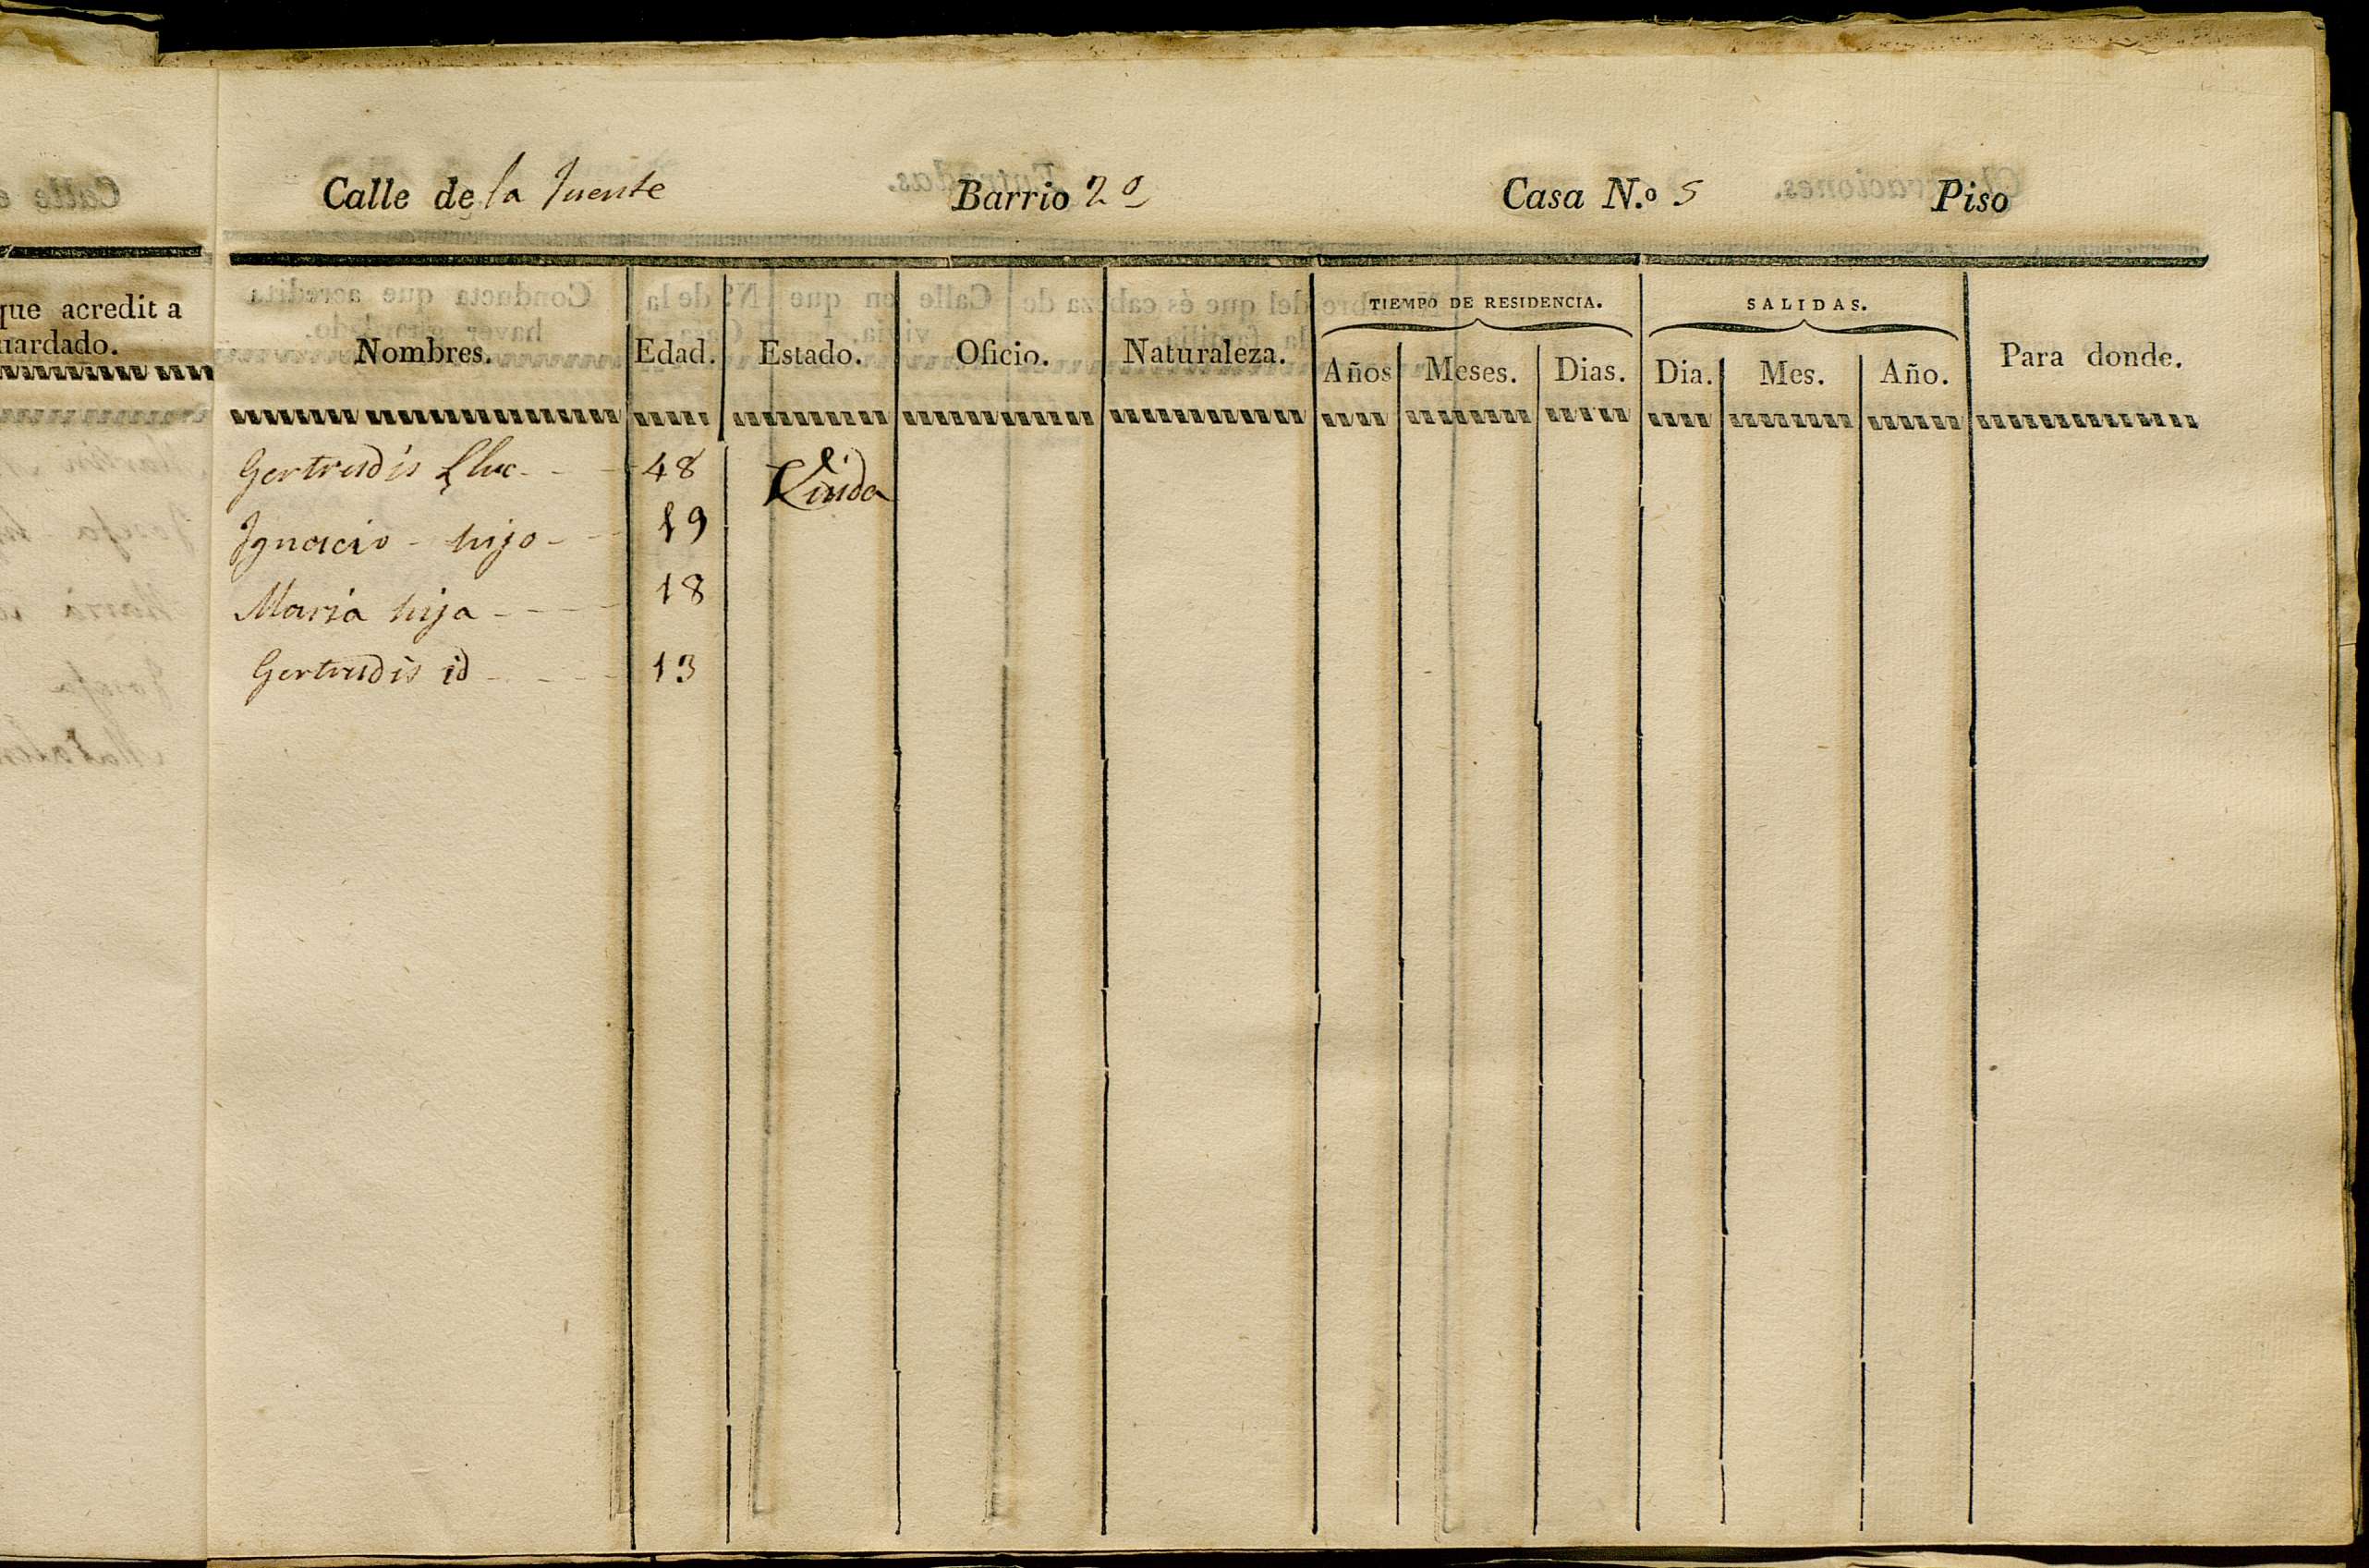 Calle de la fuente Barrio 2º Casa N.º 5 Piso
que acredita
uardado.
TIEMPO DE RESIDENCIA. SALIDAS.
Nombres. Edad. Estado. Oficio. Naturaleza. Años Meses. Dias. Dia. Mes. Año. Para donde.
Gertrudis Lluc 48 Viuda
Ignacio - hijo - 19
Maria hija - 18
Gertrudis id - 13